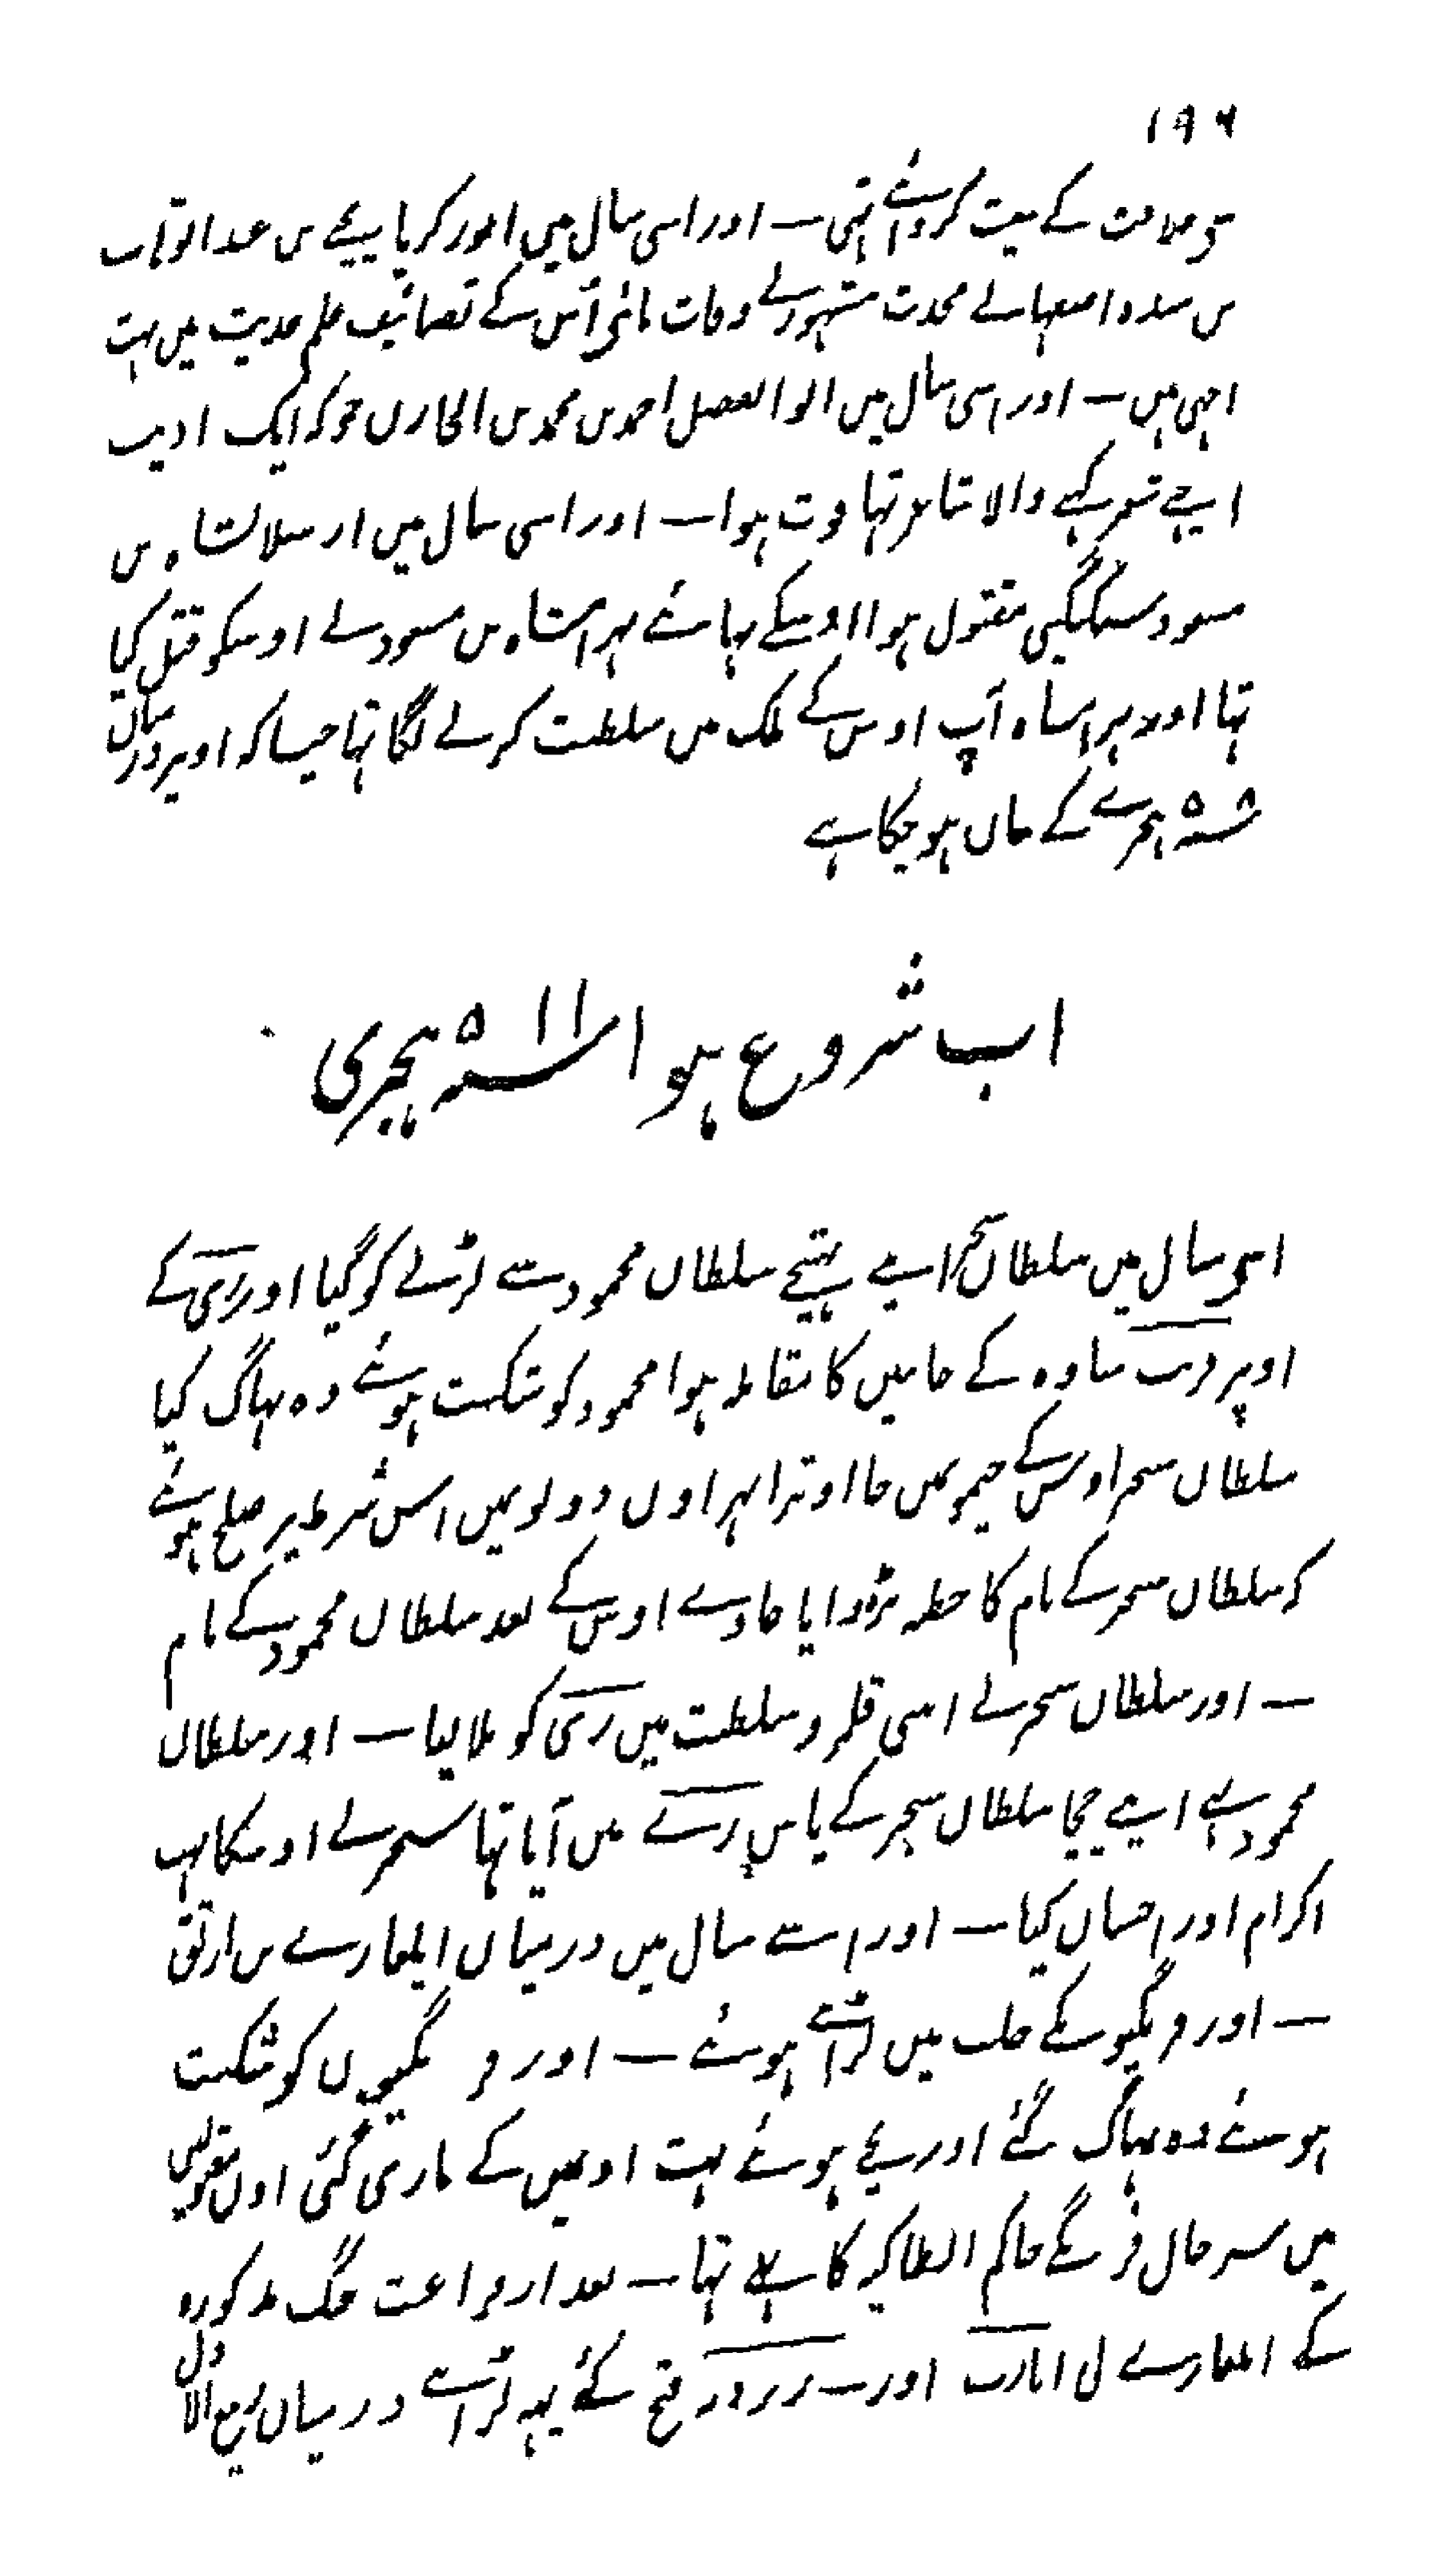 ۱۹۶
خلافت کے بیعت کروائے تہی ـ اور اسی سال میں ابو زکریا یحیے بن عبدالوہاب
بن مندہ اصفہانے محدث مشہور نے وفات پائی اس کے تصانیف علم حدیث میں بہت
اچہی ہیں ـ اور اسی سال میں ابو الفضل احمد بن محمد بن الخازن جو کہ ایک ادیب
اچہے شعر کہنے والا شاعر تہا فوت ہوا ـ اور اسی سال میں ارسلانشاہ بن
مسعود سبکتگین مقتول ہوا اوسکے بہائے بہرامشاہ بن مسعود نے اوسکو قتل کیا
تہا اور بہرامشاہ آپ اوس کے ملک میں سلطنت کرنے لگا تہا جیسا کہ اوپر درمیان
سنہ ۵۰۸ ہجرے کے بیان ہو چکا ہے
اب شروع ہوا سنہ ۵۱۱ ہجری
اسی سال میں سلطان سنجر اپنے بہتیجے سلطان محمود سے لڑنے کو گیا اور ری کے
اوپر قریب ساوہ کے جانبین کا مقابلہ ہوا محمود کو شکست ہوئے وہ بہاگ گیا
سلطان سنجر اوس کے خیمو نمیں جا اوترا پہر اون دونو نمیں اس شرط پر صلح ہوئے
کہ سلطان سنجر کے نام کا خطبہ پڑہوایا جاوے اوس کے بعد سلطان محمود کے نام
ـ اور سلطان سنجر نے اپنی قلمرو سلطنت میں ری کو ملا لیا ـ اور سلطان
محمود نے اپنے چچا سلطان سنجر کے پاس رے میں آیا تہا سنجر نے اوسکا بہت
اکرام اور احسان کیا ـ اور اسے سال میں درمیان ایلغازے بن ارتق
ـ اور فرنگیو نکے حلب میں لڑائے ہوئے ـ اور فرنگیوں کو شکست
ہوئے وہ بہاگ گئے اور بہت اونمیں کے ماری گئی اون مقتولین
میں سرجال فرنگے حاکم انطاکیہ کا بہے تہا ـ بعد از فراغت جنگ مذکورہ
کے ایلغازے نے اثارب اور زردنا فتح کئے یہہ لڑائے درمیان ربیع الاول